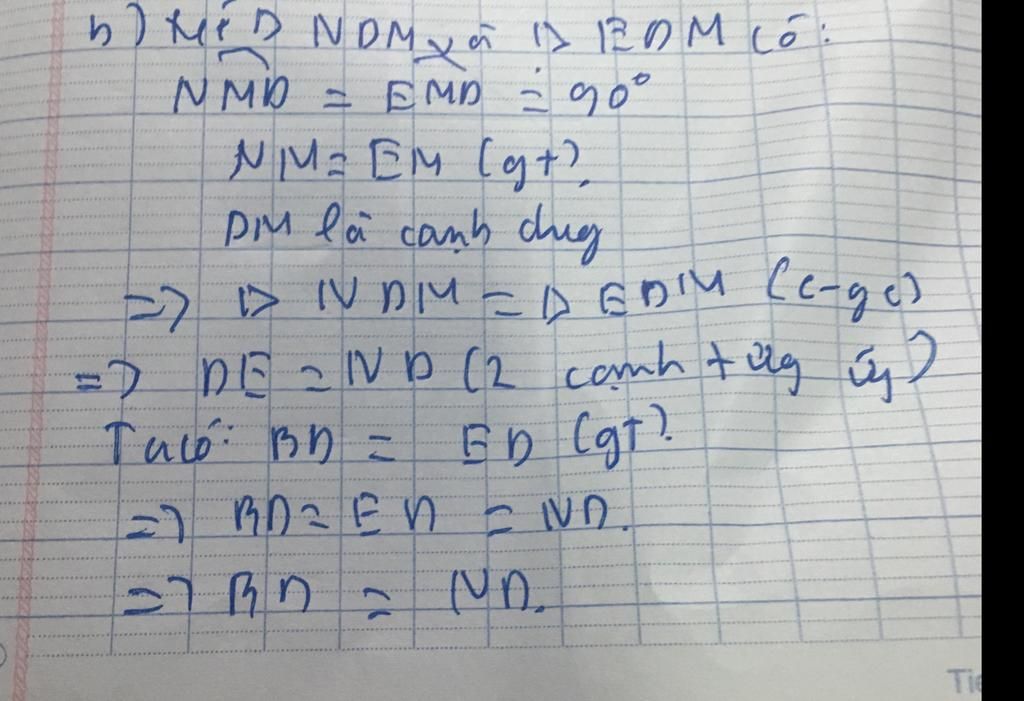 b) Xét Δ NDM và Δ EDM có:
NMD = EMD = 90°
NM = EM (gt).
DM là cạnh chug
=> Δ NDM = Δ EDM (c-g c)
=> DE = ND (2 cạnh tưg ứg)
Ta có: BD = ED (gt).
=> BD = ED = ND.
=> BD = ND.